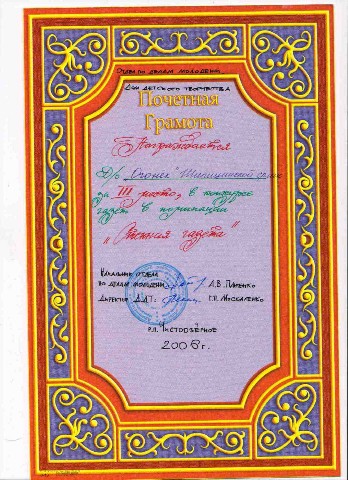 Отдел по делам молодежи
Дом детского творчества
Почетная
Грамота
Награждается
Д/о "Огонек" Шипицинской сош
за III место, в конкурсе
газет в номинации
"газета"
Начальник отдела
по делам молодежи А.В. Паненко
Директор ДДТ: Г.П. Москаленко
р.п. Чистоозёрное
2008 г.